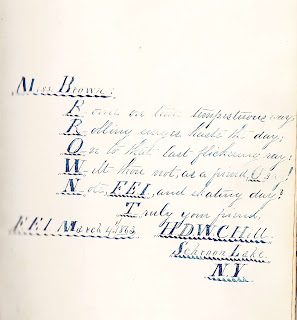 Miss Brown:
Ever on this tempestuous way,
Rolling surges haste the day;
On to that last flickering ray:
Wilt thou not, as a friend,
Note, F.F.I, and skating day?
Truly your friend,
F.F.I March 4, 1863. H.D.W.C. Hill
Schroon Lake.
N.Y.